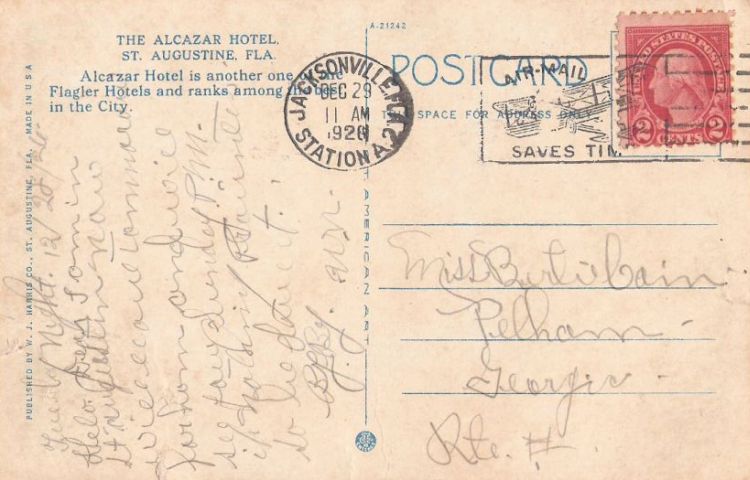 THE ALCAZAR HOTEL,
ST. AUGUSTINE, FLA.
Alcazar Hotel is another one of the
Flagler Hotels and ranks among the best
in the City.
A-21242
POSTCARD
THIS SPACE FOR ADDRESS ONLY
JACKSONVILLE, FLA.
DEC 29
11 AM
1928
STATION A.
AIR-MAIL
SAVES TIM
UNITED STATES POSTAGE
2 CENTS 2
PUBLISHED BY W. J. HARRIS CO., ST. AUGUSTINE, FLA. MADE IN U S A
AMERICAN ART
Night. 12/28
Hello Dear I am in
St Augustine now
will
for home and will
see you Sunday P.M.
if nothing
Miss Bertie Cain
Pelham
Georgia
Rte. #